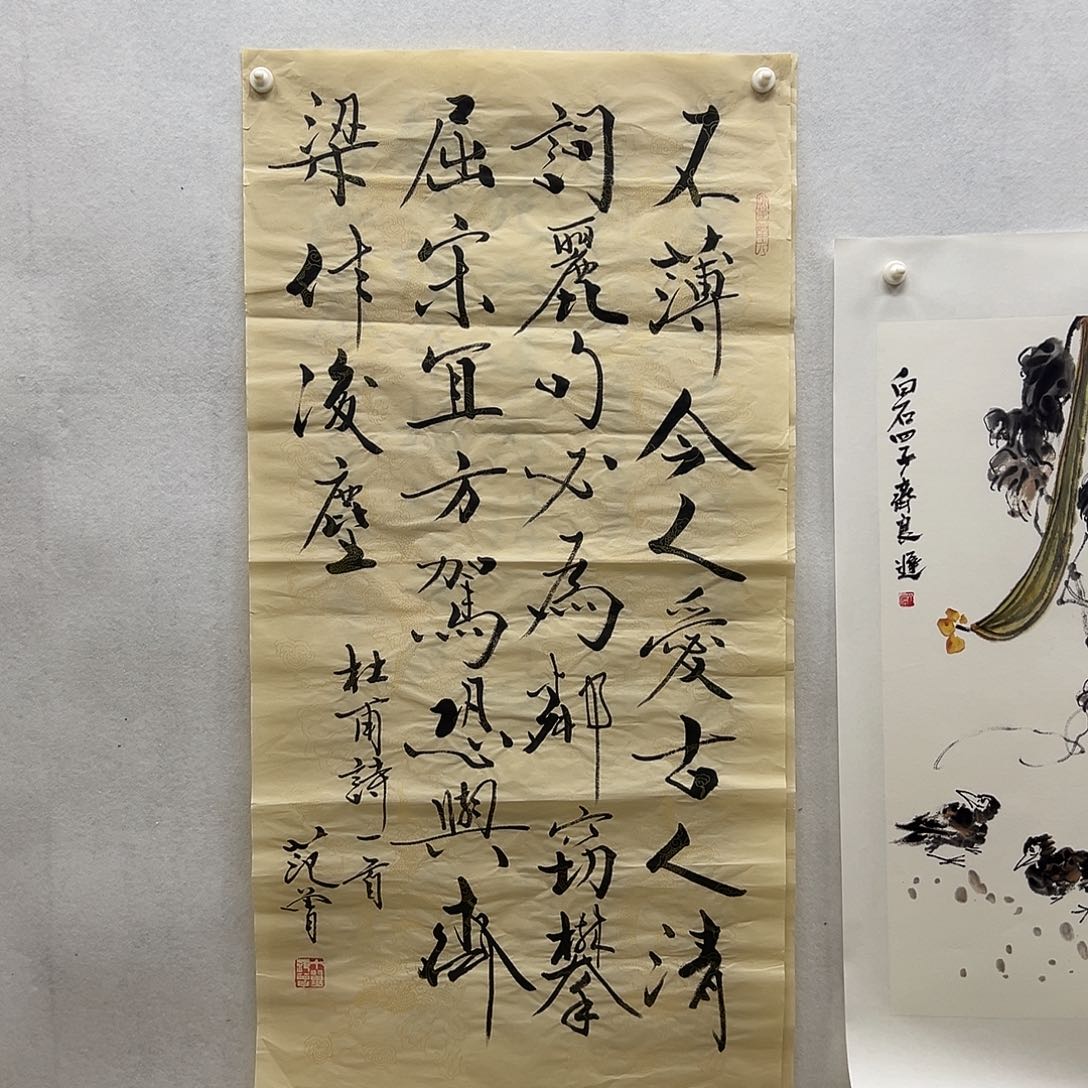 不薄今人愛古人清
詞麗句必為鄰窃攀
屈宋宜方駕恐與齊
梁作後塵
杜甫詩一首
范曾
白石四子齊良遲